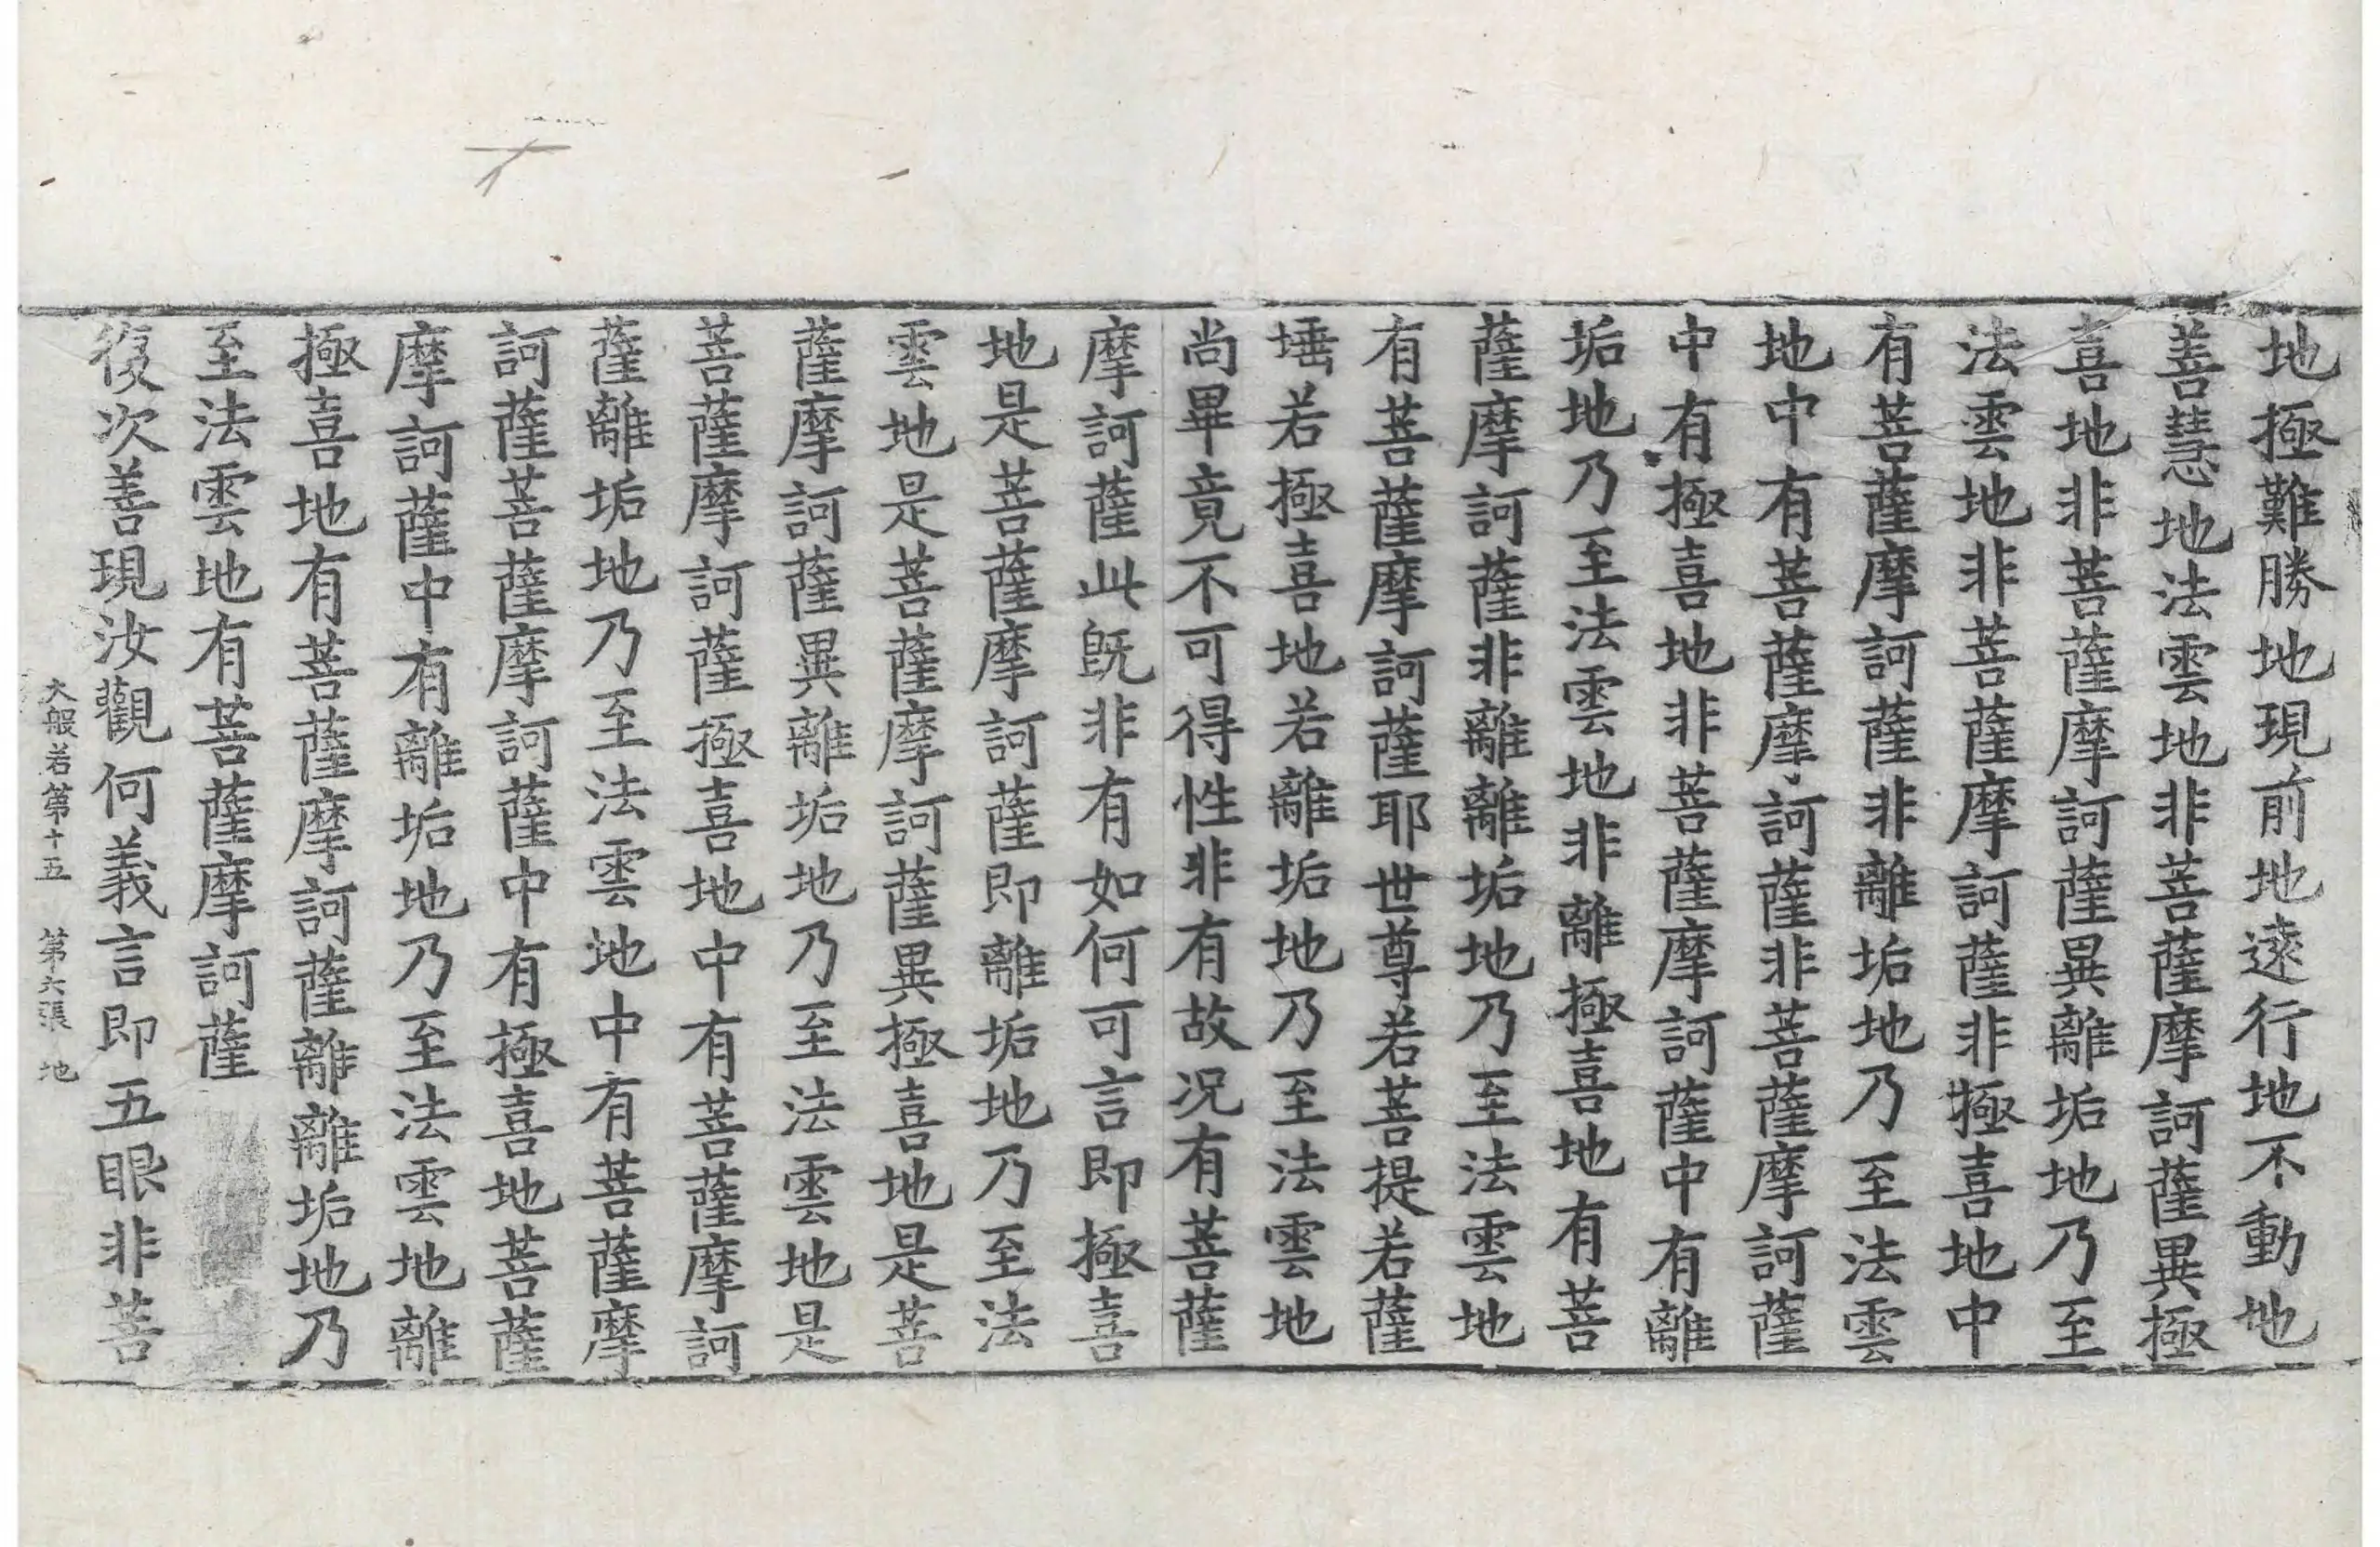 地極難勝地現前地遠行地不動地
善慧地法雲地非菩薩摩訶薩異極
喜地非菩薩摩訶薩異離垢地乃至
法雲地非菩薩摩訶薩非極喜地中
有菩薩摩訶薩非離垢地乃至法雲
地中有菩薩摩訶薩非菩薩摩訶薩
中有極喜地非菩薩摩訶薩中有離
垢地乃至法雲地非離極喜地有菩
薩摩訶薩非離離垢地乃至法雲地
有菩薩摩訶薩耶世尊若菩提若薩
埵若極喜地若離垢地乃至法雲地
尚畢竟不可得性非有故况有菩薩
摩訶薩此旣非有如何可言即極喜
地是菩薩摩訶薩即離垢地乃至法
雲地是菩薩摩訶薩異極喜地是菩
薩摩訶薩異離垢地乃至法雲地是
菩薩摩訶薩極喜地中有菩薩摩訶
薩離垢地乃至法雲地中有菩薩摩
訶薩菩薩摩訶薩中有極喜地菩薩
摩訶薩中有離垢地乃至法雲地離
極喜地有菩薩摩訶薩離離垢地乃
至法雲地有菩薩摩訶薩
復次善現汝觀何義言即五眼非菩
大般若第十五 第六張 地